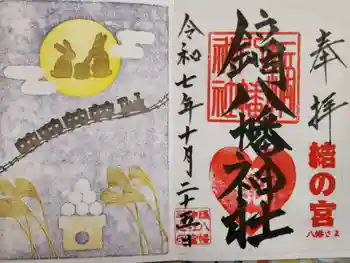 奉拝
結の宮
八幡さま
八幡神社
令和七年十月二十五日